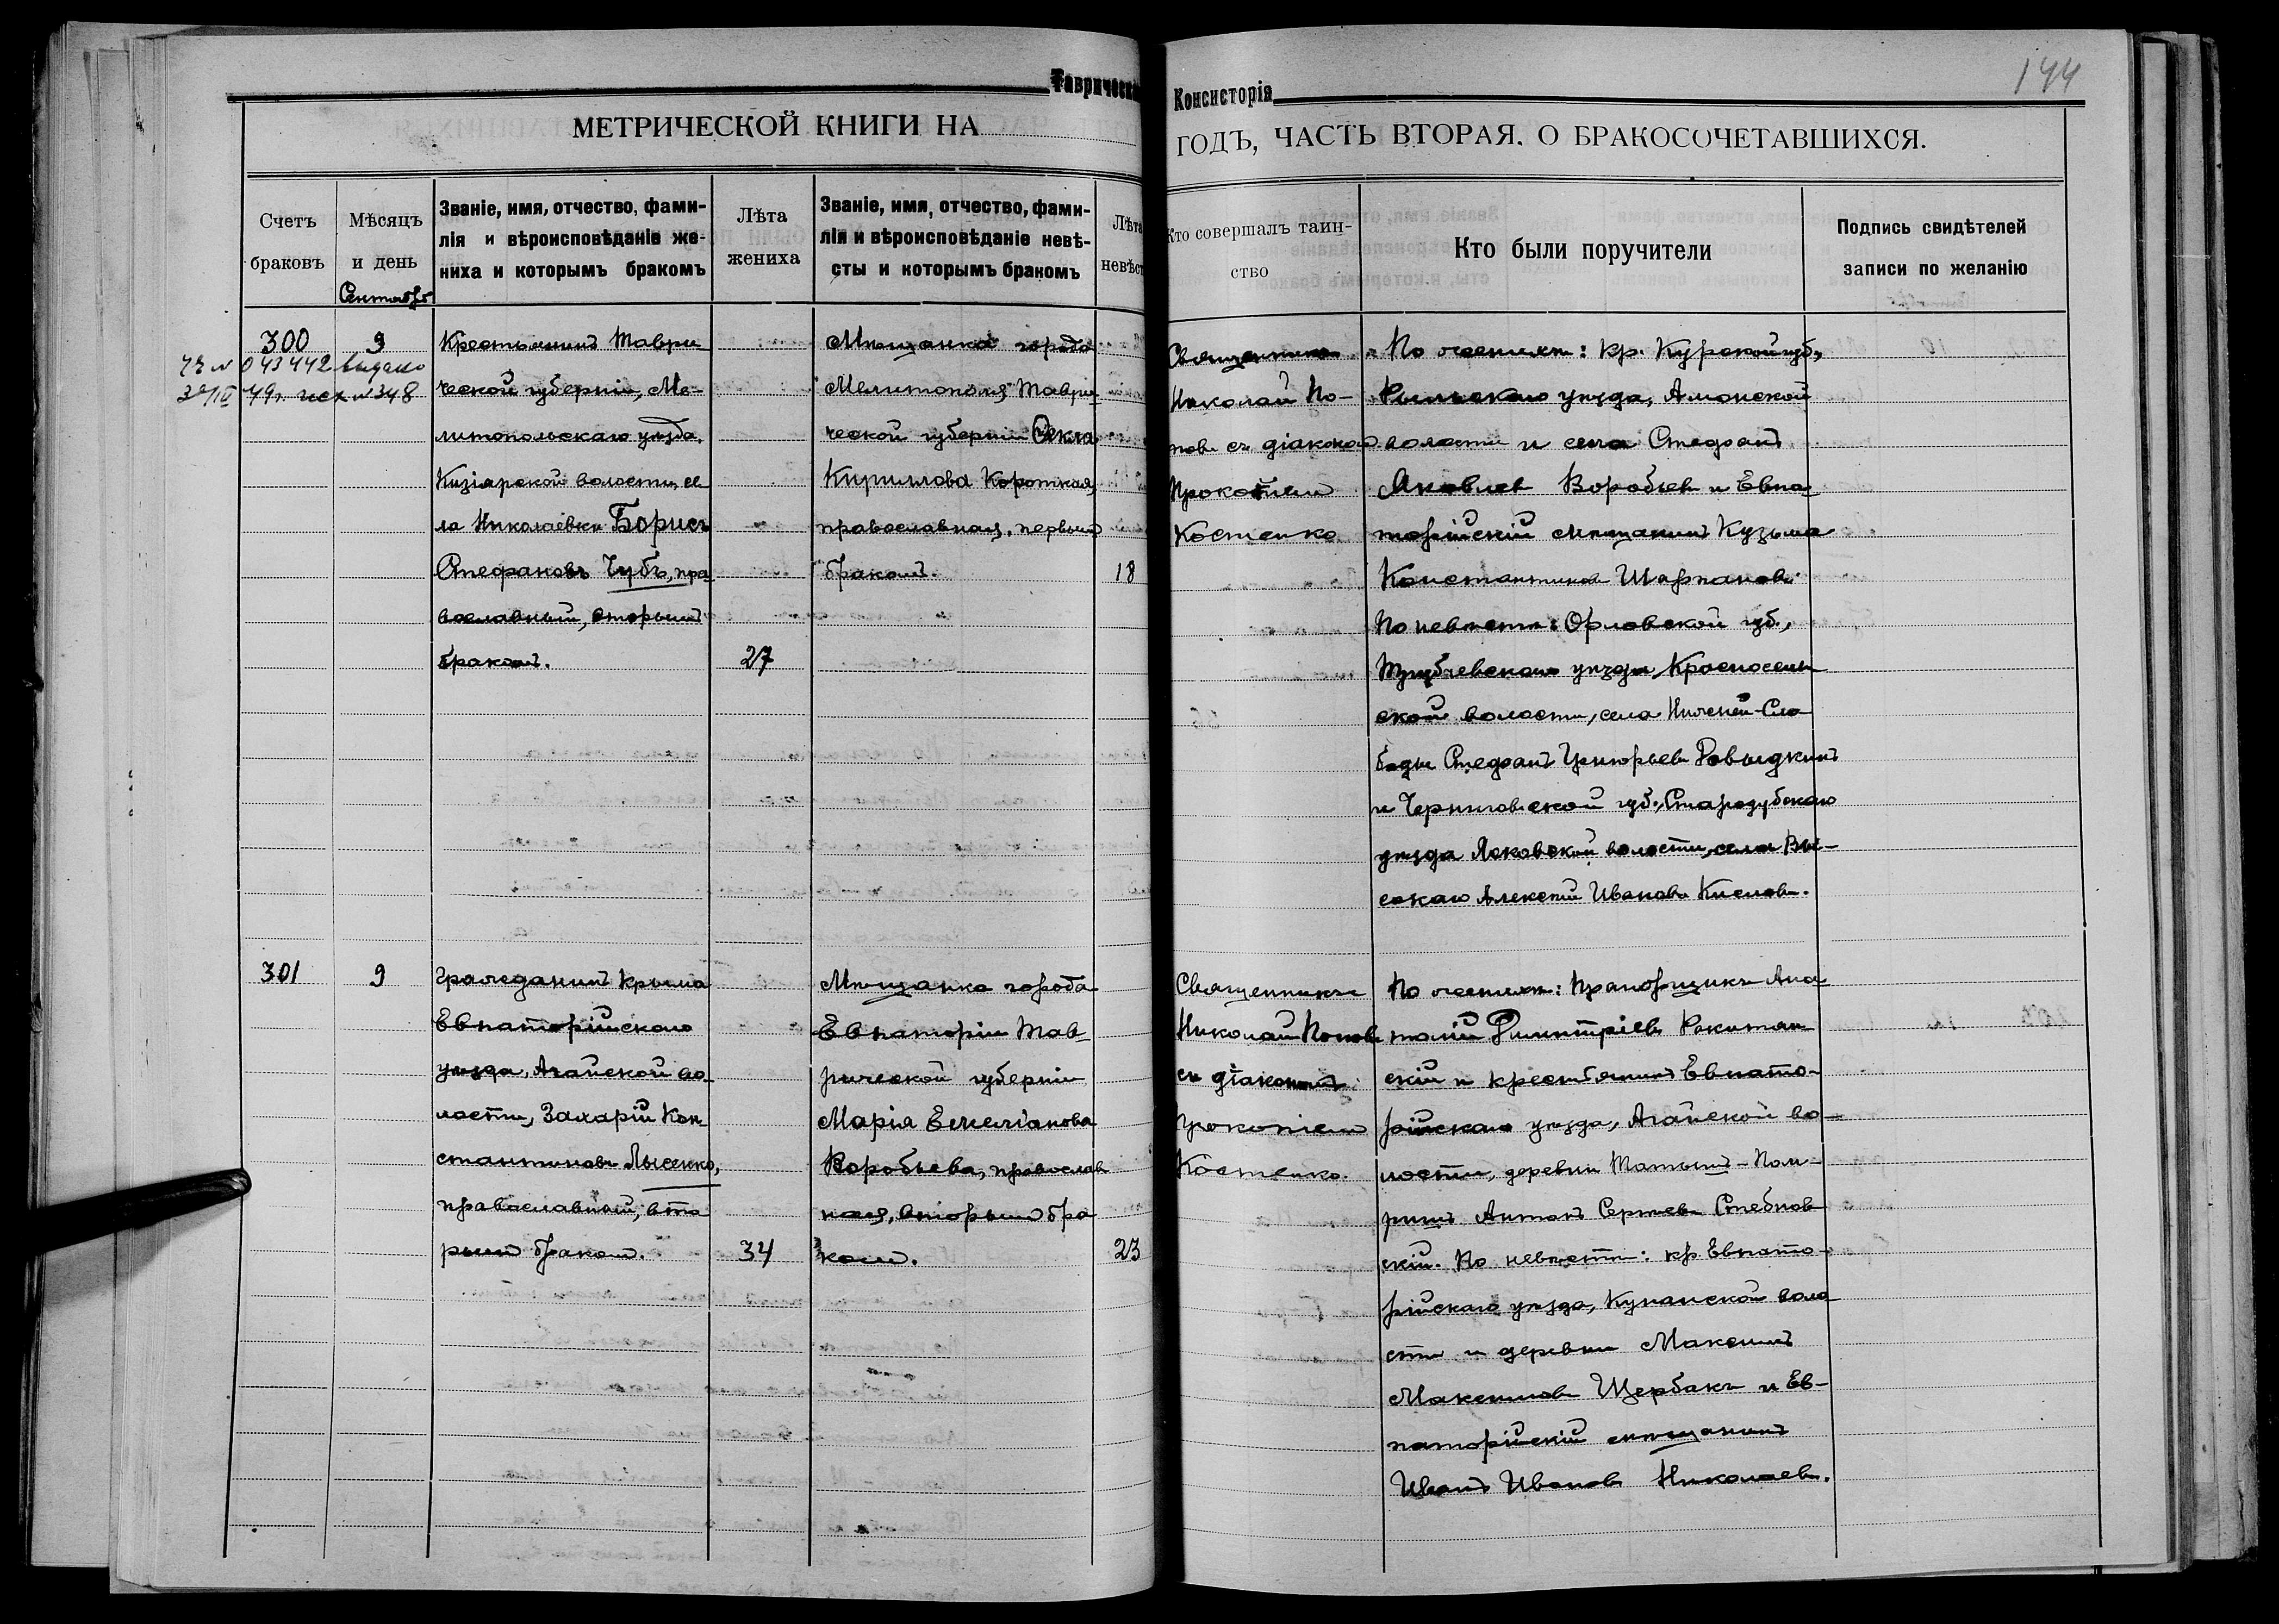 Таврическ
Консисторія
144
МЕТРИЧЕСКОЙ КНИГИ НА
ГОДЪ, ЧАСТЬ ВТОРАЯ. О БРАКОСОЧЕТАВШИХСЯ.
Счетъ браковъ
Мѣсяцъ и день
Сентябрь
Званіе, имя, отчество, фами-
лія и вѣроисповѣданіе же-
ниха и которымъ бракомъ
Лѣта жениха
Званіе, имя, отчество, фами-
лія и вѣроисповѣданіе невѣ-
сты и которымъ бракомъ
Лѣта
невѣст
Кто совершалъ таин-
ство
Кто были поручители
Подпись свидѣтелей
записи по желанію
300
9
№ 043442 выдано
49г. исх № 348
Крестьянинъ Таври
ческой губерніи, Ме-
литопольскаго уѣзда,
Кизіярской волости, се
ла Николаевки Борисъ
Стефановъ Чубъ, пра
вославный, вторымъ
бракомъ.
27
Мѣщанка города
Мелитополя Таври
ческой губерніи Ѳекла
Кириллова Короткая,
православная, первымъ
бракомъ.
18
Священникъ
Николай По-
повъ съ діакономъ
Прокопіемъ
Костенко
По женихѣ: кр. Курской губ.,
Рыльскаго уѣзда, Амонской
волости и села Стефанъ
Яковлев Воробьев и Евпа
торійскій мѣщанинъ Кузьма
Константиновъ Шарпановъ.
По невѣстѣ: Орловской губ.,
Трубчевскаго уѣзда, Красносель
ской волости, села Нижней-Сло
боды Стефанъ Григорьевъ Ровыдкинъ
и Черниговской губ., Стародубскаго
уѣзда Лсковской волости, села Вы-
сокаго Алексѣй Ивановъ Кисловъ.
301
9
Гражданинъ Крыма
Евпаторійскаго
уѣзда, Агайской во
лости, Захарій Кон
стантиновъ Лысенко,
православный, вто
рымъ бракомъ.
34
Мѣщанка города
Евпаторіи Тав-
рической губерніи
Марія Емеліанова
Воробьева, православ
ная, вторымъ бра
комъ.
23
Священникъ
Николай Поповъ
съ діакономъ
Прокопіемъ
Костенко.
По женихѣ: Прапорщикъ Ана
толій Димитріевъ Рокитан
скій и крестьянинъ Евпато-
рійскаго уѣзда, Агайской во-
лости, деревни
Антонъ Сергѣевъ Стебнов
скій. По невѣстѣ: кр. Евпато-
рійскаго уѣзда, Курманской воло
сти и деревни Максимъ
Максимовъ Щербакъ и Ев-
паторійскій мѣщанинъ
Иванъ Ивановъ Николаевъ.